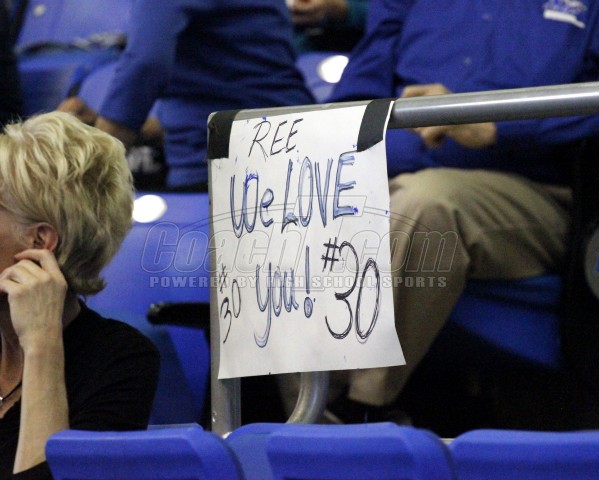 REE
We LOVE
#30 you! #30
CoachT.com
POWERED BY HIGH SCHOOL SPORTS